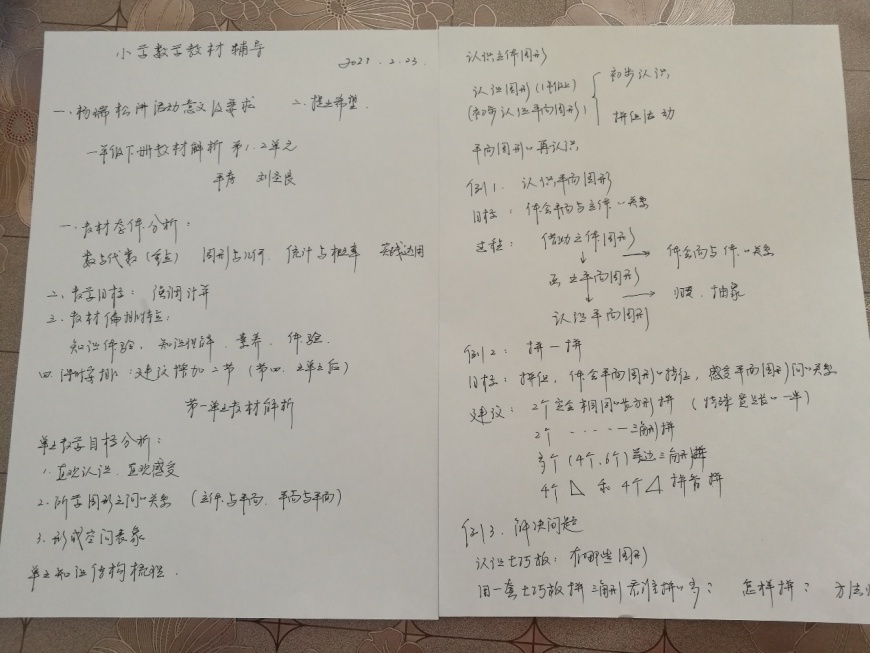 小学数学教材辅导
2021.2.23.
一.杨瑞松讲活动意义及要求 二.提出希望.
一年级下册教材解析 第1.2单元
刘立良
一.教材整体分析:
数与代数(重点) 图形与几何. 统计与概率 实践运用
二.教学目标: 强调计算
三.教材编排特点:
知识体验, 知识理解. 素养. 体验.
四.课时安排:建议增加二节(第四.五单元后)
第一单元教材解析
单元教学目标分析:
1.直观认识.直观感受
2.所学图形之间的关系 (立体与平面.平面与平面)
3.形成空间表象
单元知识结构梳理.
认识立体图形
认识图形(1年级上) 初步认识
(初步认识平面图形) 拼组活动
平面图形的再认识
例1. 认识平面图形
目标: 体会平面与立体的关系
过程: 借助立体图形
↓ → 体会面与体的关系
画出平面图形
↓ → 归类.抽象
认识平面图形
例2: 拼一拼
目标: 拼组,体会平面图形的特征,感受平面图形间的关系
建议: 2个完全相同的长方形拼 (特殊宽是长的一半)
2个 ····· 三角形拼
多个(4个.6个)等边三角形拼
4个◺ 和 4个◿ 拼
例3. 解决问题
认识七巧板:有哪些图形
用一套七巧板拼三角形看谁拼的多; 怎样拼?